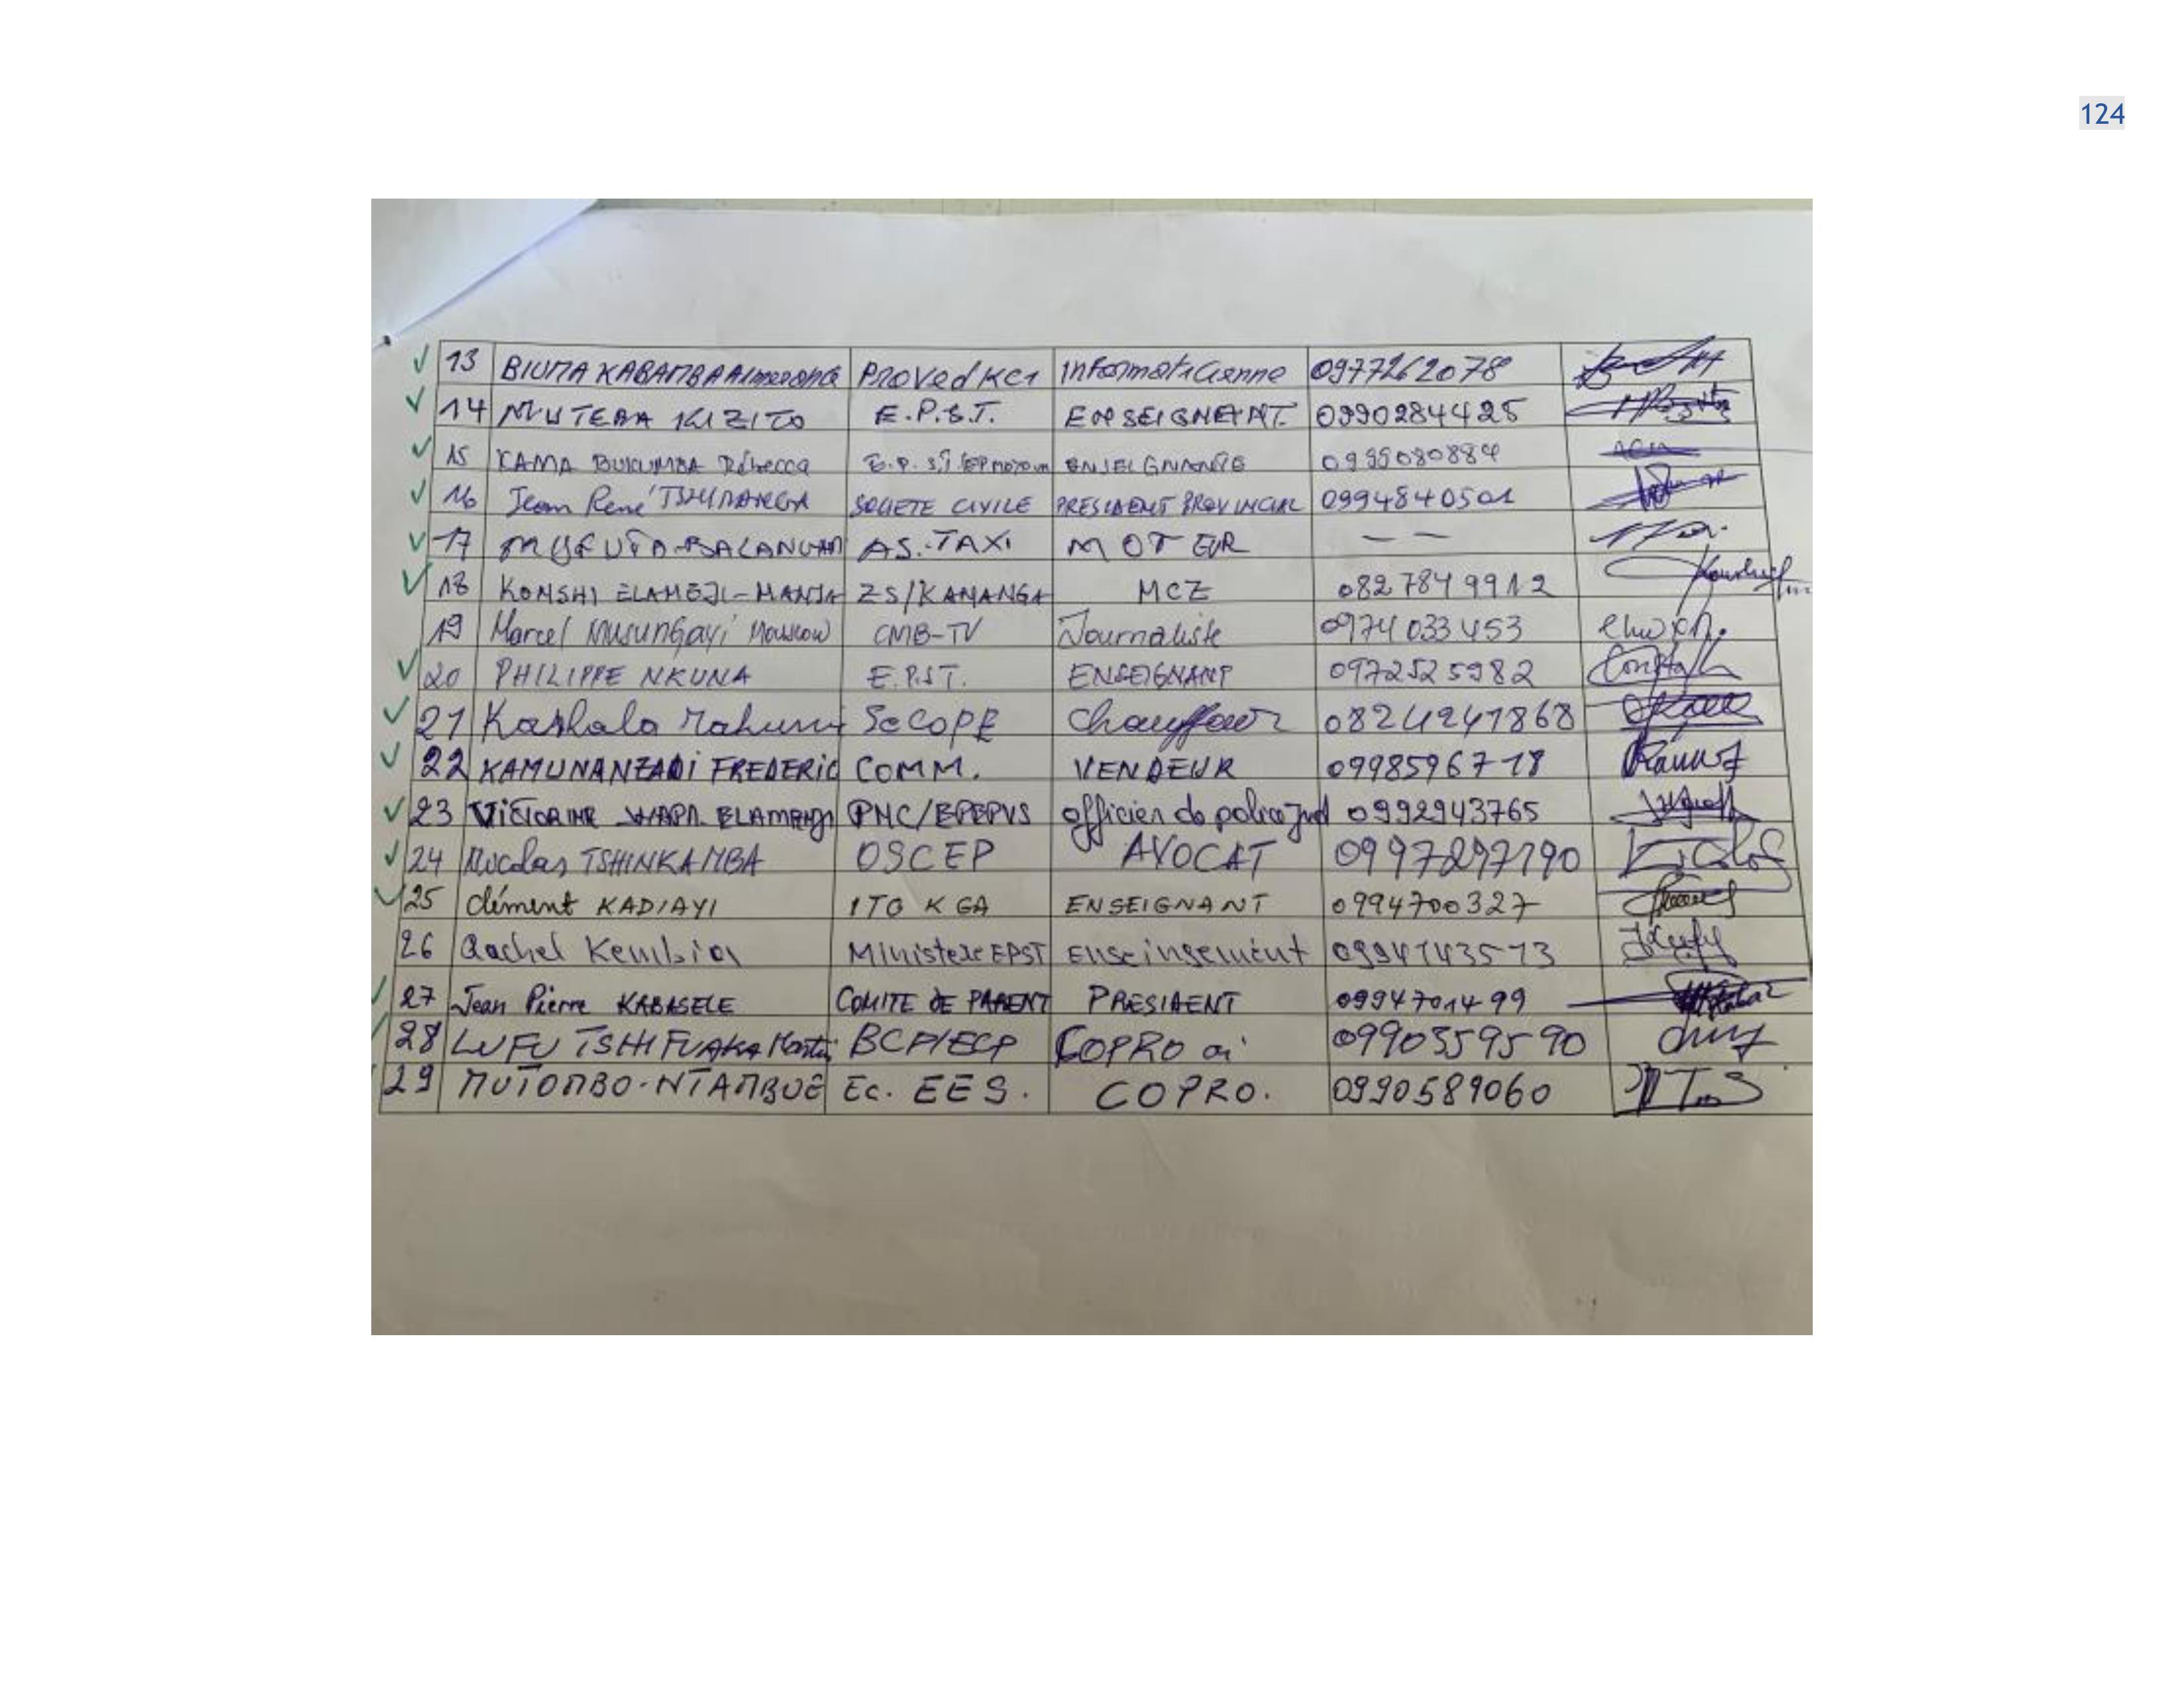 124
13 BIUMA KABAMBA Proved KC1 Informaticienne 0977262078
14 MUTEBA KIZITO E.P.S.T. ENSEIGNEANT. 0990284425
15 KAMA BUKUMBA Rébecca ENSEIGNANTE
16 Jean René TSHIMANGA SOCIETE CIVILE PRESIDENT PROVINCIAL 0994840501
17 AS.-TAXI MOTEUR — —
18 KONSHI ELAMEJI-MANJA ZS/KANANGA MCZ 0827849912
19 Marcel Musungayi CMB-TV Journaliste 0974033453
20 PHILIPPE NKUNA E.P.ST. ENSEIGNANT 0972525982
21 Kashala SECOPE Chauffeur
22 KAMUNANZADI FREDERIC COMM. VENDEUR 0998596718
23 VICTORINE officier de police jud 0992943765
24 Nicolas TSHINKAMBA OSCEP AVOCAT 0997297190
25 Clément KADIAYI ITO KGA ENSEIGNANT 0994700327
26 Rachel Kembia Ministère EPST Enseingement
27 Jean Pierre KABASELE COMITE DE PARENT PRESIDENT 0994701499
28 LUFU TSHIFUAKA BCP/ECP COPRO ai 0990359590
29 MUTOMBO-NTAMBUE Ec. EES. COPRO. 0990589060